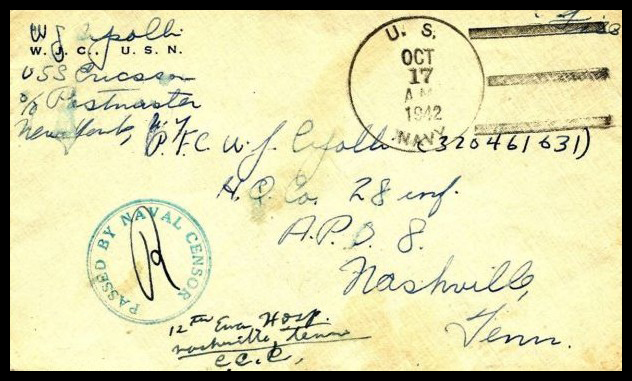 W J Cipolli
W. J. C., U. S. N.
USS Ericsson
c/o Postmaster
New York, N.Y.
U. S.
OCT
17
A.M.
1942
NAVY
P.F.C. W. J. Cipolli (320461631)
H.Q. Co. 28 inf.
A.P.O. 8.
Nashville,
Tenn.
PASSED BY NAVAL CENSOR
12th Evac Hosp.
Nashville, Tenn